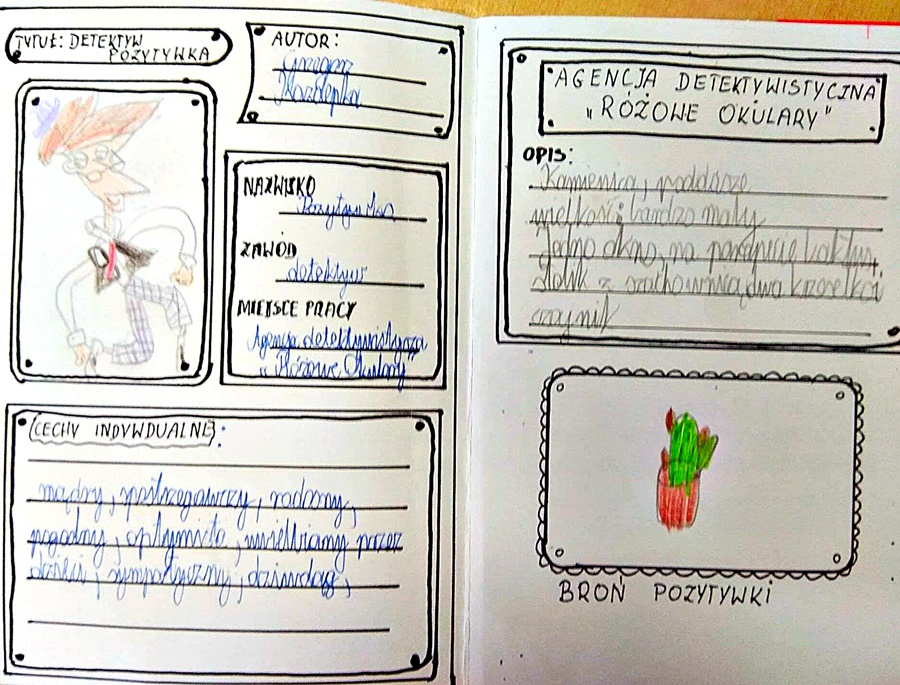 TYTUŁ: DETEKTYW
POZYTYWKA
AUTOR:
Grzegorz
Kasdepke
NAZWISKO
Pozytywka
ZAWÓD
detektyw
MIEJSCE PRACY
Agencja detektywistyczna
„Różowe Okulary”
CECHY INDYWDUALNE:
mądry, spostrzegawczy, radosny,
pogodny, optymista, uwielbiany przez
dzieci, sympatyczny,
AGENCJA DETEKTYWISTYCZNA
„RÓŻOWE OKULARY”
OPIS:
Kamienica, poddasze
wielkość: bardzo mały
Jedno okno, na parapecie kaktus,
stolik z szachownicą, dwa krzesełka
czajnik
BROŃ POZYTYWKI